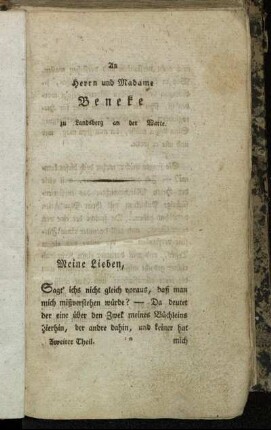 An
Herrn und Madame
Beneke
zu Landsberg an der Warte.
Meine Lieben,
Sagt' ichs nicht gleich voraus, daß man
mich mißverstehen würde? — Da deutet
der eine über den Zwek meines Büchleins
hierhin, der andre dahin, und keiner hat
Zweiter Theil.
mich